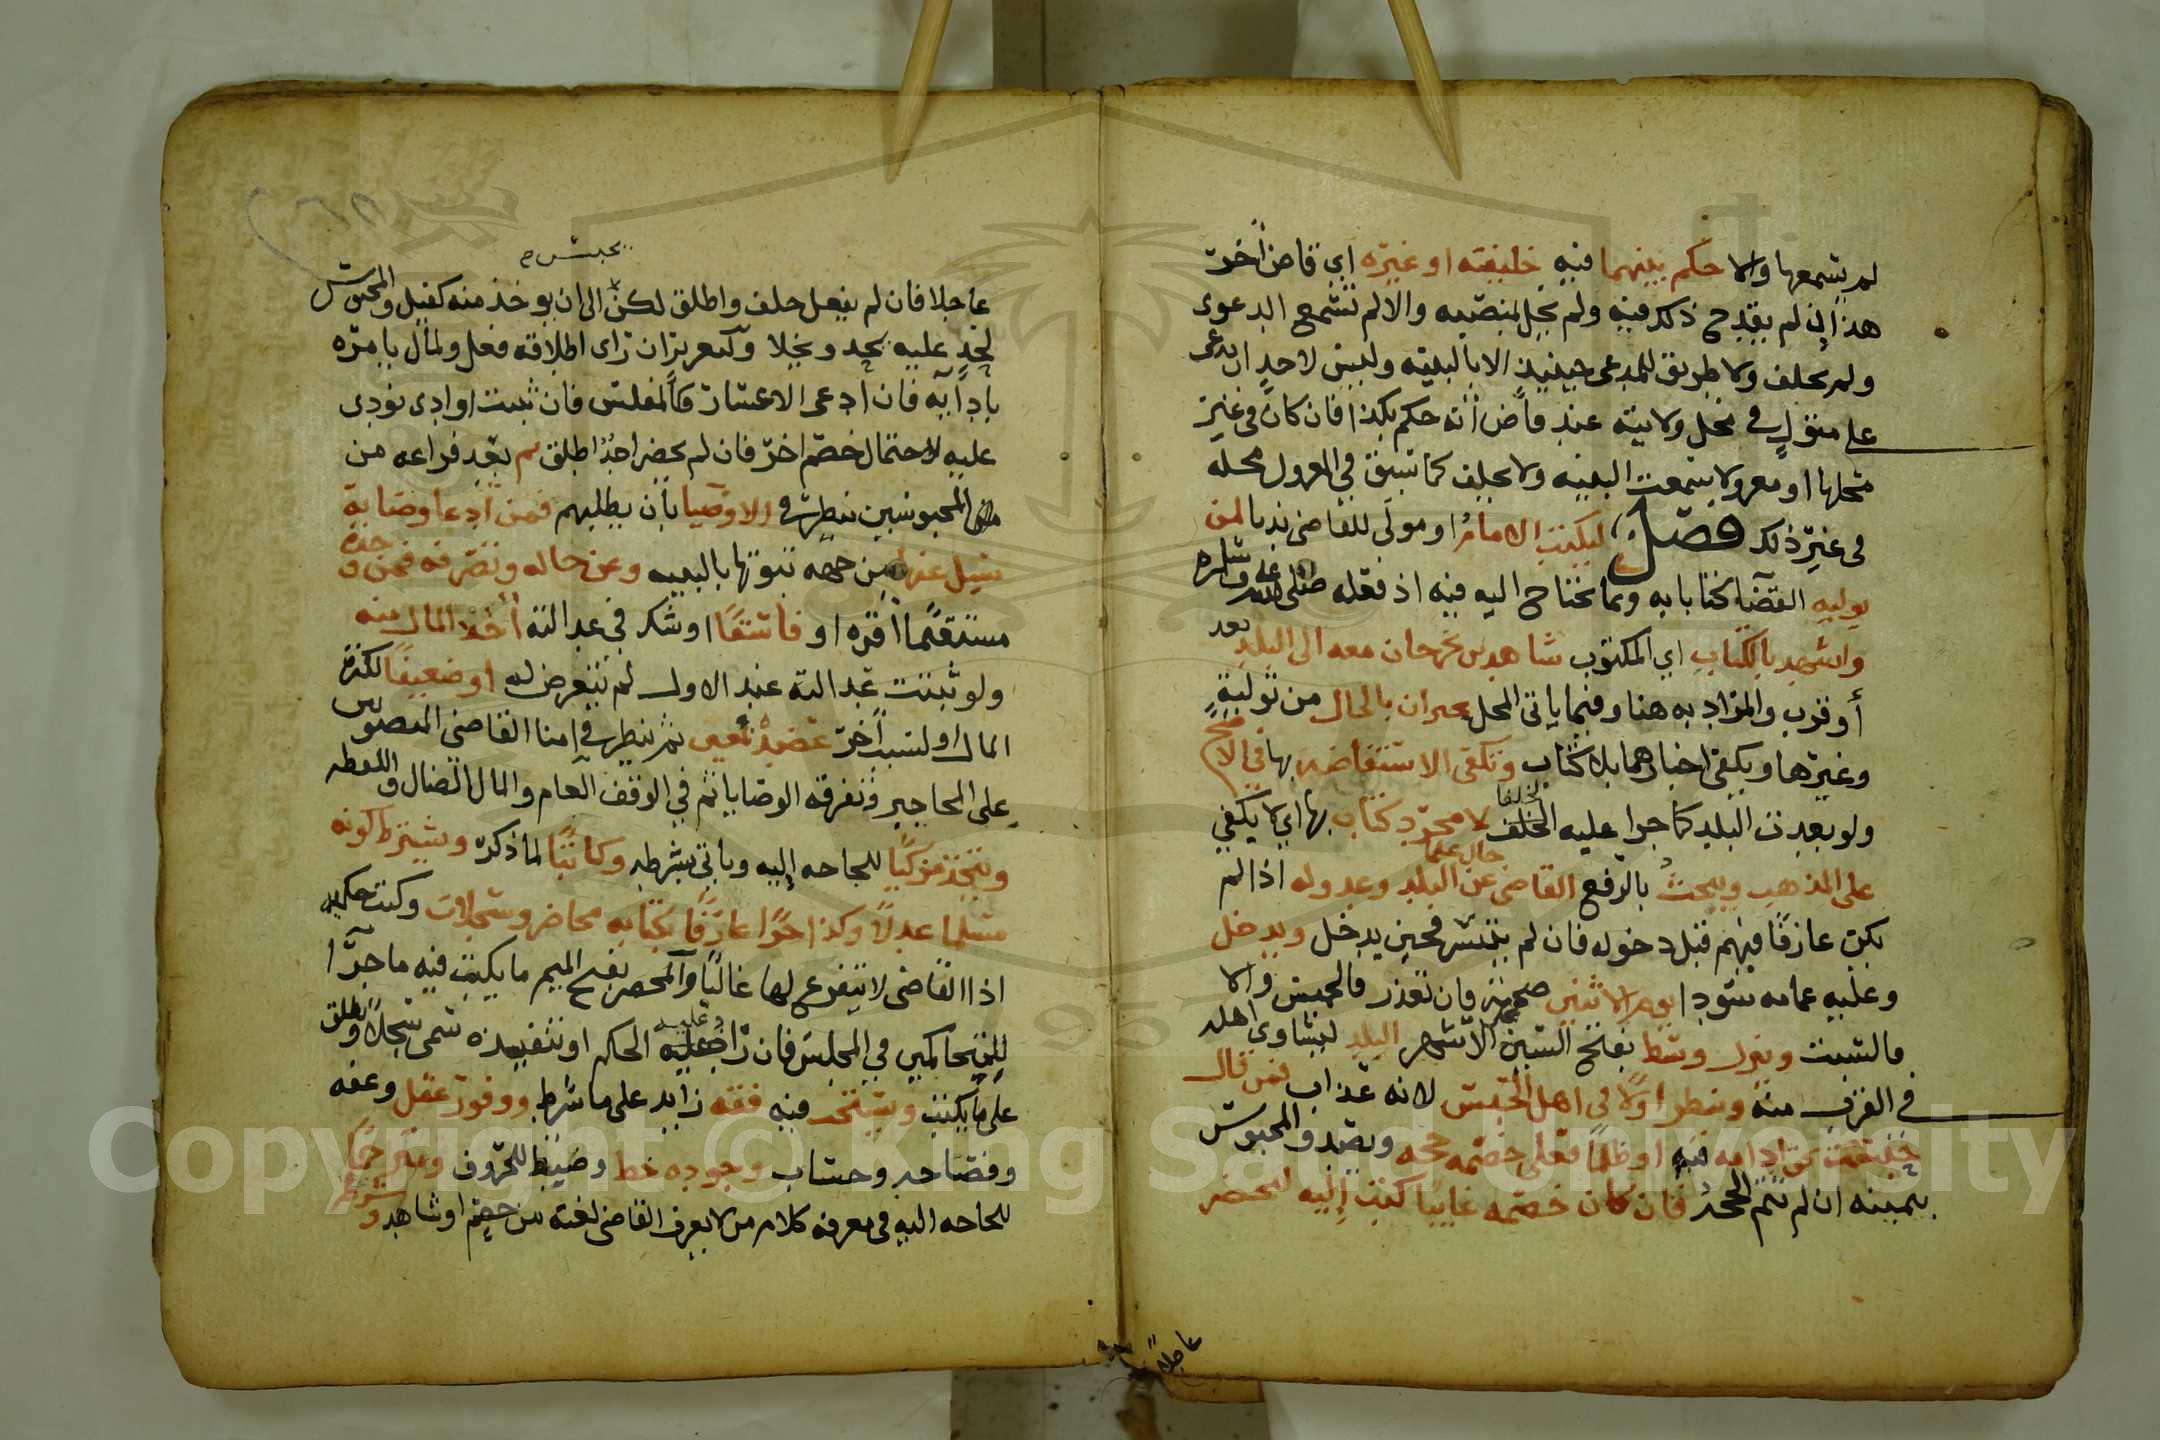 لم يسمعها والا حكم بينهما فيه خليفته او غيره اي قاض آخر
هذا إن لم يقدح ذكر فيه ولم يخل بمنصبه والا لم تسمع الدعوى
ولم يحلف ولا طريق للمدعى حينيذ الا بالبينه وليس لاحد ان يدعى
على متول في محل ولايته عند قاض أنه حكم بكذا فان كان في غير
محلها او معزولا سمعت البينه ولا يحلف كما سبق في المعزول محله
في غير ذلك فصل ليكتب الامام او مولى للقاضى ندبا لمن
يوليه القضا كتابا به وبما يحتاج اليه فيه اذ فعله صلى الله عليه وسلم
واشهد بالكتاب اي المكتوب شاهدين يخرجان معه الى البلد بعد
أو قرب والمراد به هنا وفيما ياتى المحل يخبران بالحال من تولية
وغيرها ويكفى اخبارهما بلا كتاب وتكفى الاستفاضه بها في الاصح
ولو بعدت البلد كما جرا عليه الخلف الخلفا لا مجرد كتاب بها اي لا يكفي
على المذهب ويبحث بالرفع القاضى عن حال علما البلد وعدوله اذا لم
يكن عارفا فيهم قبل دخوله فان لم يتيسر فحين يدخل ويدخل
وعليه عمامه سودا يوم الاثنين صحيحته فان تعذر فالخميس والا
فالسبت وينزل وسط بفتح السين الاشهر البلد ليتساوي اهله
في القرب منه وينظر اولا فى اهل الحبس لانه عذاب فمن قال
حبست بحق ادامه فيه او ظلما فعلى خصمه حجه ويصدق المحبوس
بيمينه ان لم تقم الحجه فان كان خصمه غايبا كتب إليه ليحضر
عاجلا
يحبس م
عاجلا فان لم يفعل حلف واطلق لكن الى ان يوخذ منه كفيل والمحبوس
لحد عليه يحد ويخلا وكتعزير ان راى اطلاقه فعل ولمال يامره
بادآيه فان ادعى الاعسار فكالمفلس فان ثبت او ادى نودى
عليه لاحتمال خصم اخر فان لم يحضر احد اطلق ثم بعد فراغه من
المحبوسين ينظر في الاوصيا بأن يطلبهم فمن ادعا وصاية
سيل عنها من جهه ثبوتها بالبينه وعن حاله وتصرفه فمن وجده
مستقيما أقره او فاسقا او شك في عدالته أخذ المال منه
ولو ثبتت عدالته عند الاول لم يتعرض له او ضعيفا لكثرة
المال او لسبب آخر عضده بمعين ثم ينظر في امنا القاضى المنصوبين
على المحاجير وتفرقه الوصايا ثم في الوقف العام والمال الضال واللقطه
ويتخذ مزكيا للحاجه إليه وياتى بشرطه وكاتبا لما ذكر ويشترط كونه
مسلما عدلا وكذا حرا عارفا بكتابه محاضر وسجلات وكتب حكميه
اذ القاضى لا يتفرغ لها غالبا والمحضر بفتح الميم ما يكتب فيه ما جرا
للمتحاكمين في المجلس فان زاد عليه الحكم او تنفيذه سمى سجلا ويطلق
على ما يكتب ويستحب فيه فقه زايد على ما شرط ووفور عقل وعفه
وفصاحه وحساب وجوده خط وضبط للحروف ومترجما
للحاجه اليه في معرفه كلام من لا يعرف القاضى لغته من خصم او شاهد وشرطه